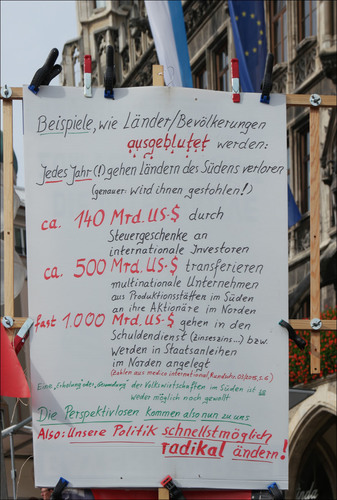 Beispiele, wie Länder/Bevölkerungen
ausgeblutet werden:
Jedes Jahr (!) gehen Ländern des Südens verloren
(genauer: Wird ihnen gestohlen!)
ca. 140 Mrd. US-$ durch
Steuergeschenke an
internationale Investoren
ca. 500 Mrd. US-$ transferieren
multinationale Unternehmen
aus Produktionsstätten im Süden
an ihre Aktionäre im Norden
fast 1.000 Mrd. US-$ gehen in den
Schuldendienst (Zinseszins...) bzw.
werden in Staatsanleihen
im Norden angelegt
(Zahlen aus medico international, Rundschr. 03/2015, S. 6)
Eine "Erholung" oder "Gesundung" der Volkswirtschaften im Süden ist so
weder möglich noch gewollt
Die Perspektivlosen kommen also nun zu uns
Also: Unsere Politik schnellstmöglich
radikal ändern!